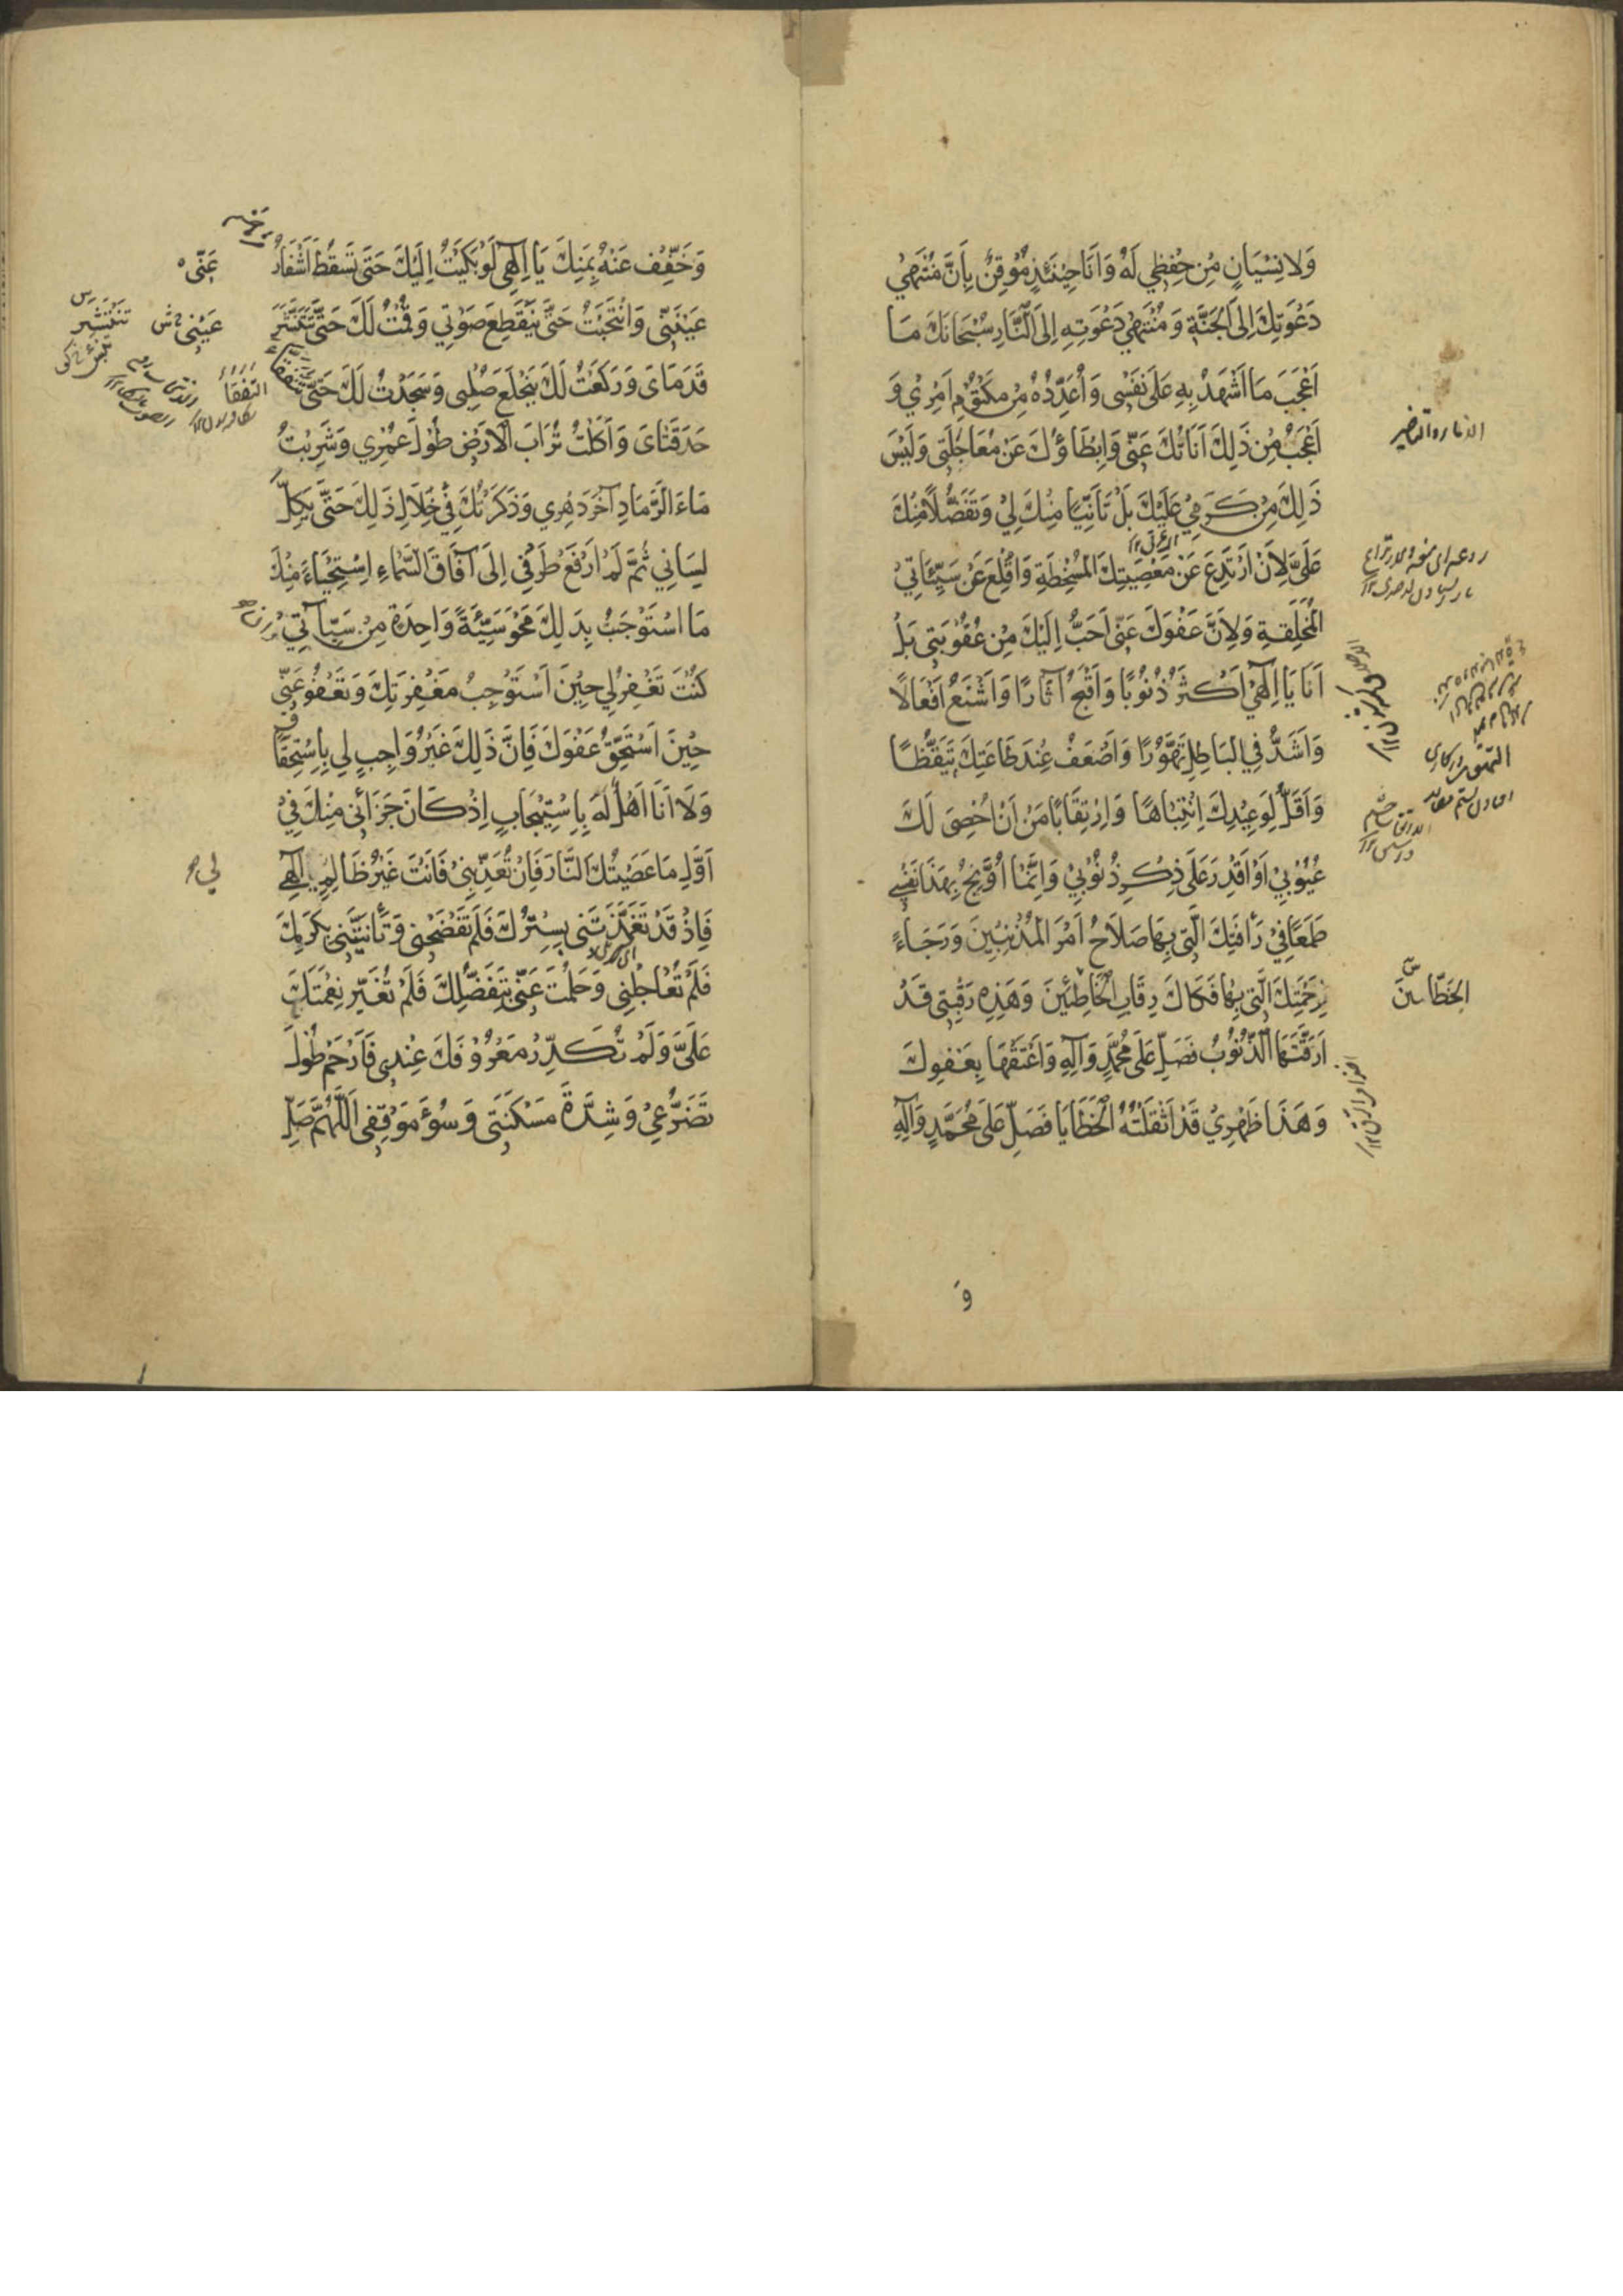 وَلَا نِسْيَانٍ مِنْ حِفْظِي لَهُ وَاَنَا حِيْنَئِذٍ مُوْقِنٌ بِاَنَّ مُنْتَهٰى
دَعْوَتِكَ اِلَى الْجَنَّةِ وَمُنْتَهٰى دَعْوَتِهِ اِلَى النَّارِ سُبْحَانَكَ مَا
اَعْجَبَ مَا اَشْهَدُ بِهِ عَلَى نَفْسِى وَاُعَدِّدُهُ مِنْ مَكْتُوْمِ اَمْرِيْ وَ
اَعْجَبُ مِنْ ذَلِكَ اَنَاتُكَ عَنِّى وَاِبْطَاؤُكَ عَنْ مُعَاجَلَتِى وَلَيْسَ
ذَلِكَ مِنْ كَرَمِيْ عَلَيْكَ بَلْ تَاَنِّيًا مِنْكَ لِيْ وَتَفَضُّلًا مِنْكَ
عَلَىَّ لِاَنْ اَرْتَدِعَ عَنْ مَعْصِيَتِكَ الْمُسْخِطَةِ وَاُقْلِعَ عَنْ سَيِّئَاتِيْ
الْمُخْلِقَةِ وَلِاَنَّ عَفْوَكَ عَنِّى اَحَبُّ اِلَيْكَ مِنْ عُقُوْبَتِى بَلْ
اَنَا يَا اِلٰهِيْ اَكْثَرُ ذُنُوْبًا وَاَقْبَحُ آثَارًا وَاَشْنَعُ اَفْعَالًا
وَاَشَدُّ فِي الْبَاطِلِ تَهَوُّرًا وَاَضْعَفُ عِنْدَ طَاعَتِكَ تَيَقُّظًا
وَاَقَلُّ لِوَعِيْدِكَ اِنْتِبَاهًا وَاِرْتِقَابًا مِنْ اَنْ اُحْصِىَ لَكَ
عُيُوْبِيْ اَوْ اَقْدِرَ عَلَى ذِكْرِ ذُنُوْبِيْ وَاِنَّمَا اُوَبِّخُ بِهَذَا نَفْسِى
طَمَعًا فِيْ رَأْفَتِكَ الَّتِى بِهَا صَلَاحُ اَمْرِ الْمُذْنِبِيْنَ وَرَجَاءً
لِرَحْمَتِكَ الَّتِى بِهَا فَكَاكُ رِقَابِ الْخَاطِئِيْنَ وَهَذِهِ رَقَبَتِى قَدْ
اَرَقَّتْهَا الذُّنُوْبُ فَصَلِّ عَلَى مُحَمَّدٍ وَآلِهِ وَاَعْتِقْهَا بِعَفْوِكَ
وَهَذَا ظَهْرِيْ قَدْ اَثْقَلَتْهُ الْخَطَايَا فَصَلِّ عَلَى مُحَمَّدٍ وَآلِهِ
وَ
وَخَفِّفْ عَنْهُ بِمَنِّكَ يَا اِلٰهِى لَوْ بَكَيْتُ اِلَيْكَ حَتَى تَسْقُطَ اَشْفَارُ
عَيْنَىَّ وَانْتَحَبْتُ حَتَّى يَنْقَطِعَ صَوْتِي وَقُمْتُ لَكَ حَتَّى تَتَنَشَّرَ
قَدَمَاىَ وَرَكَعْتُ لَكَ حَتَّى يَنْخَلِعَ صُلْبِى وَسَجَدْتُ لَكَ حَتَّى تَتَفَقَّأَ
حَدَقَتَاىَ وَاَكَلْتُ تُرَابَ الْاَرْضِ طُوْلَ عُمْرِي وَشَرِبْتُ
مَاءَ الرَّمَادِ آخَرَ دَهْرِي وَذَكَرْتُكَ فِيْ خِلَالِ ذَلِكَ حَتَّى يَكِلَّ
لِسَانِي ثُمَّ لَمْ اَرْفَعْ طَرْفِي اِلَى آفَاقِ السَّمَاءِ اِسْتِحْيَاءً مِنْكَ
مَا اسْتَوْجَبْتُ بِذَلِكَ مَحْوَ سَيِّئَةٍ وَاحِدَةٍ مِنْ سَيِّاتِي
كُنْتَ تَغْفِرُ لِي حِيْنَ اَسْتَوْجِبُ مَغْفِرَتَكَ وَتَعْفُوْ عَنِّى
حِيْنَ اَسْتَحِقُّ عَفْوَكَ فَاِنَّ ذَلِكَ غَيْرُ وَاجِبٍ لِي بِاِسْتِحْقَاقٍ
وَلَا اَنَا اَهْلٌ لَهُ بِاِسْتِيْجَابٍ اِذْ كَانَ جَزَائِى مِنْكَ فِيْ
اَوَّلِ مَا عَصَيْتُكَ النَّارَ فَاِنْ تُعَذِّبْنِىْ فَاَنْتَ غَيْرُ ظَالِمٍ اِلٰهِى
فَاِذْ قَدْ تَغَمَّدْتَنِى بِسِتْرِكَ فَلَمْ تَفْضَحْنِى وَتَأَنَّيْتَنِى بِكَرَمِكَ
فَلَمْ تُعَاجِلْنِى وَحَلُمْتَ عَنِّى بِتَفَضُّلِكَ فَلَمْ تُغَيِّرْ نِعْمَتَكَ
عَلَىَّ وَلَمْ تُكَدِّرْ مَعْرُوْفَكَ عِنْدِى فَارْحَمْ طُوْلَ
تَضَرُّعِيْ وَشِدَّةَ مَسْكَنَتِى وَسُوْءَ مَوْقِفِى اَللّٰهُمَّ صَلِّ